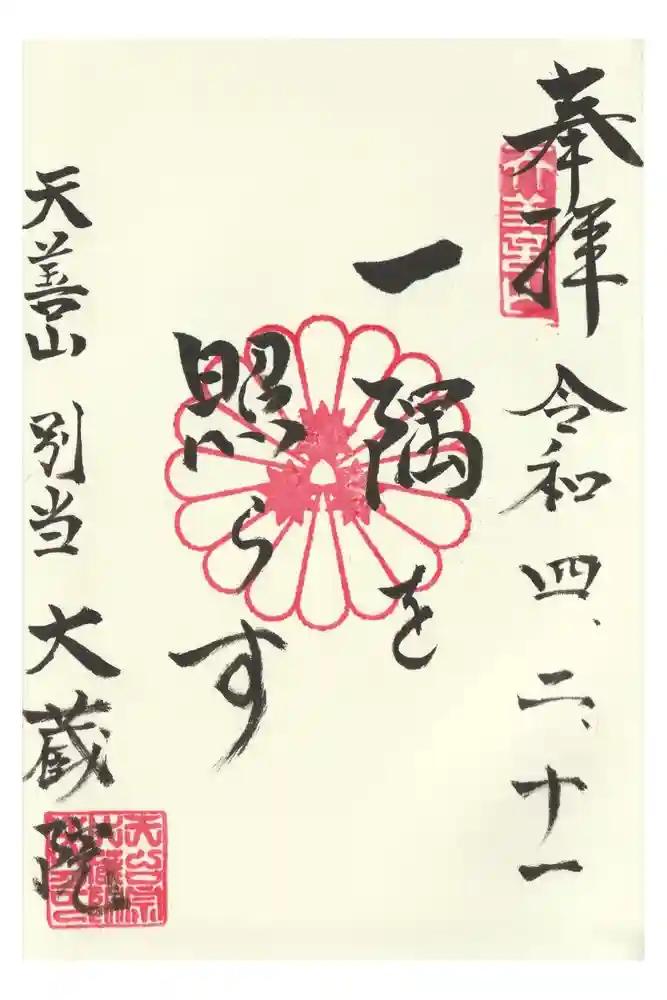 奉拝 令和四、二、十一
一隅を
照らす
天善山 別当 大蔵院